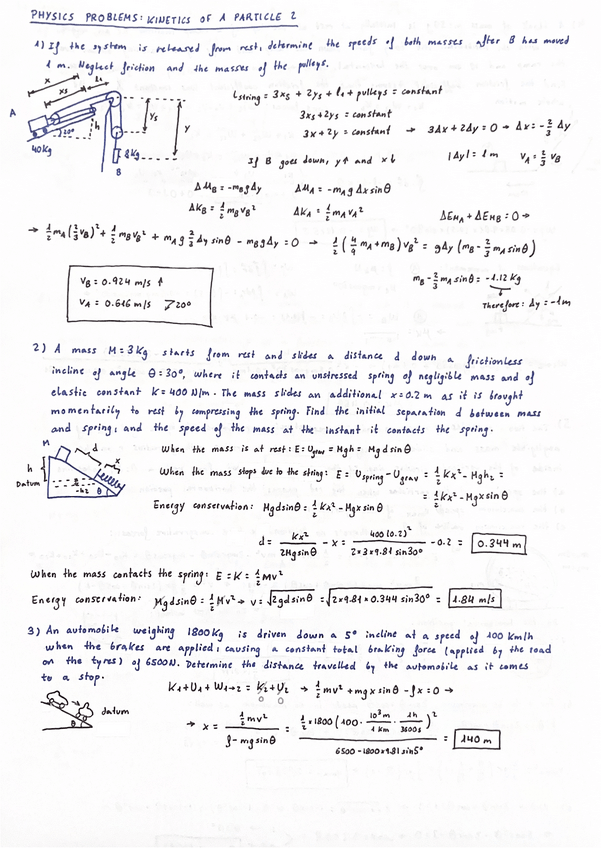 PHYSICS PROBLEMS: KINETICS OF A PARTICLE 2
1) If the system is released from rest, determine the speeds of both masses after B has moved
1 m. Neglect friction and the masses of the pulleys.
x
xs
l1
A
h
20°
40Kg
ys
y
8Kg
B
lstring = 3xs + 2ys + l1 + pulleys = constant
3xs + 2ys = constant
3x + 2y = constant → 3Δx + 2Δy = 0 → Δx = -2/3 Δy
If B goes down, y↑ and x↓ |Δy| = 1m vA = 2/3 vB
ΔUB = -mB g Δy ΔUA = -mA g Δx sinθ
ΔKB = 1/2 mB vB² ΔKA = 1/2 mA vA² ΔEMA + ΔEMB = 0 →
→ 1/2 mA (2/3 vB)² + 1/2 mB vB² + mA g 2/3 Δy sinθ - mB g Δy = 0 → 1/2 (4/9 mA + mB) vB² = gΔy (mB - 2/3 mA sinθ)
vB = 0.924 m/s ↑
vA = 0.616 m/s 20°
mB - 2/3 mA sinθ = -1.12 Kg
Therefore: Δy = -1m
2) A mass M = 3Kg starts from rest and slides a distance d down a frictionless
incline of angle θ = 30°, where it contacts an unstressed spring of negligible mass and of
elastic constant K = 400 N/m. The mass slides an additional x = 0.2 m as it is brought
momentarily to rest by compressing the spring. Find the initial separation d between mass
and spring, and the speed of the mass at the instant it contacts the spring.
M
d
x
h
Datum
-h2
θ
When the mass is at rest: E = Ugrav = Mgh = Mgd sinθ
When the mass stops due to the string: E = Uspring - Ugrav = 1/2 Kx² - Mgh2 =
= 1/2 Kx² - Mgx sinθ
Energy conservation: Mgd sinθ = 1/2 Kx² - Mgx sinθ
d = Kx² / 2Mg sinθ - x = 400(0.2)² / 2×3×9.81 sin30° - 0.2 = 0.344 m
When the mass contacts the spring: E = K = 1/2 Mv²
Energy conservation: Mgd sinθ = 1/2 Mv² → v = √2gd sinθ = √2×9.81×0.344 sin30° = 1.84 m/s
3) An automobile weighing 1800Kg is driven down a 5° incline at a speed of 100 Km/h
when the brakes are applied, causing a constant total braking force (applied by the road
on the tyres) of 6500N. Determine the distance travelled by the automobile as it comes
to a stop.
datum
θ
K1 + U1 + W1→2 = K2 + U2 → 1/2 mv² + mgx sinθ - fx = 0 →
0 0
→ x = 1/2 mv² / f - mg sinθ = 1/2 × 1800 (100 · 10³m/1km · 1h/3600s)² / 6500 - 1800×9.81 sin5° = 140 m